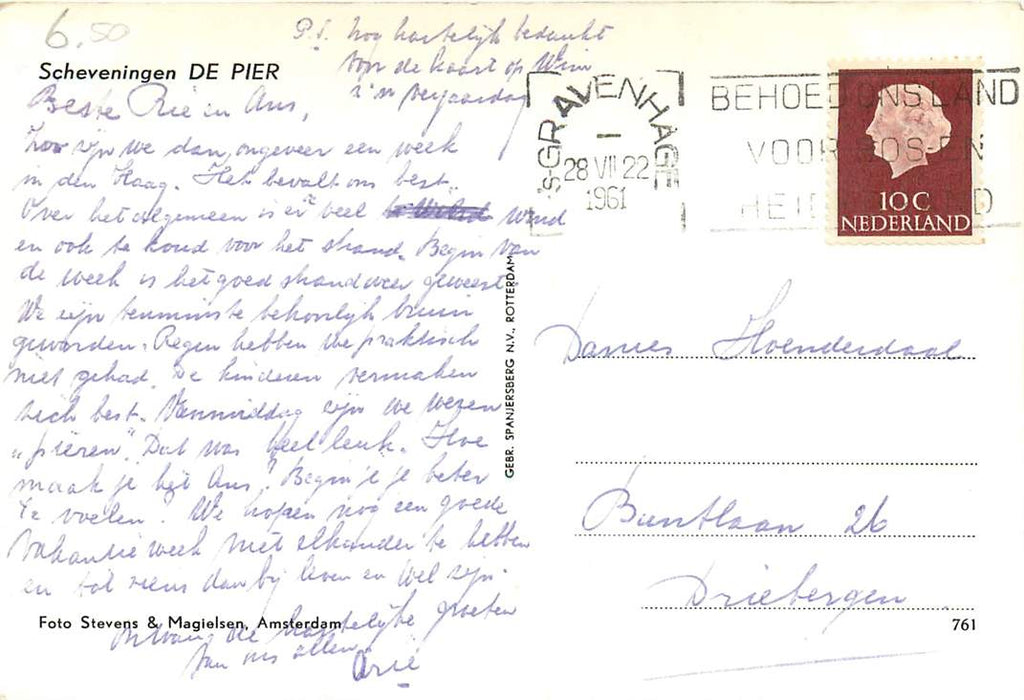 6.50
P.S. Nog hartelijk bedankt
voor de kaart op Wim
z'n verjaardag
Scheveningen DE PIER
Beste Rie en Ans,
Zoo zijn we dan ongeveer een week
in den Haag. Het bevalt ons best.
Over het algemeen is er veel wind
en ook te koud voor het strand. Begin van
de week is het goed strandweer geweest.
We zijn tenminste behoorlijk bruin
geworden. Regen hebben we praktisch
niet gehad. De kinderen vermaken
zich best. Vanmiddag zijn we wezen
„pieren". Dat was heel leuk. Hoe
maak je het Ans? Begin je je beter
te voelen? We hopen nog een goede
vakantie week met elkander te hebben
en tot ziens dan bij leven en wel zijn.
Ontvang de hartelijke groeten
van ons allen
Arie
Foto Stevens & Magielsen, Amsterdam
GEBR. SPANJERSBERG N.V., ROTTERDAM
's-GRAVENHAGE
1
28 VII 22
1961
BEHOED ONS LAND
VOOR BOS EN
HEI D
10 C
NEDERLAND
Dames Hoenderdaal
Buntlaan 26
Driebergen
761